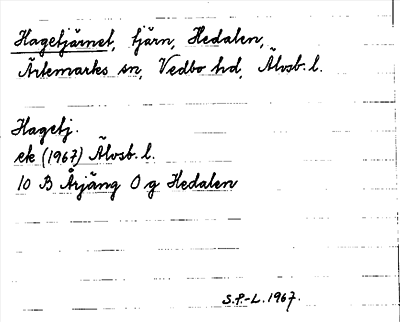 Hagetjärnet, tjärn, Hedalen,
Ärtemarks sn, Vedbo hd, Älvsb. l.
Hagetj.
ek (1967) Älvsb. l.
10 B Årjäng O g Hedalen
S.P.-L. 1967.